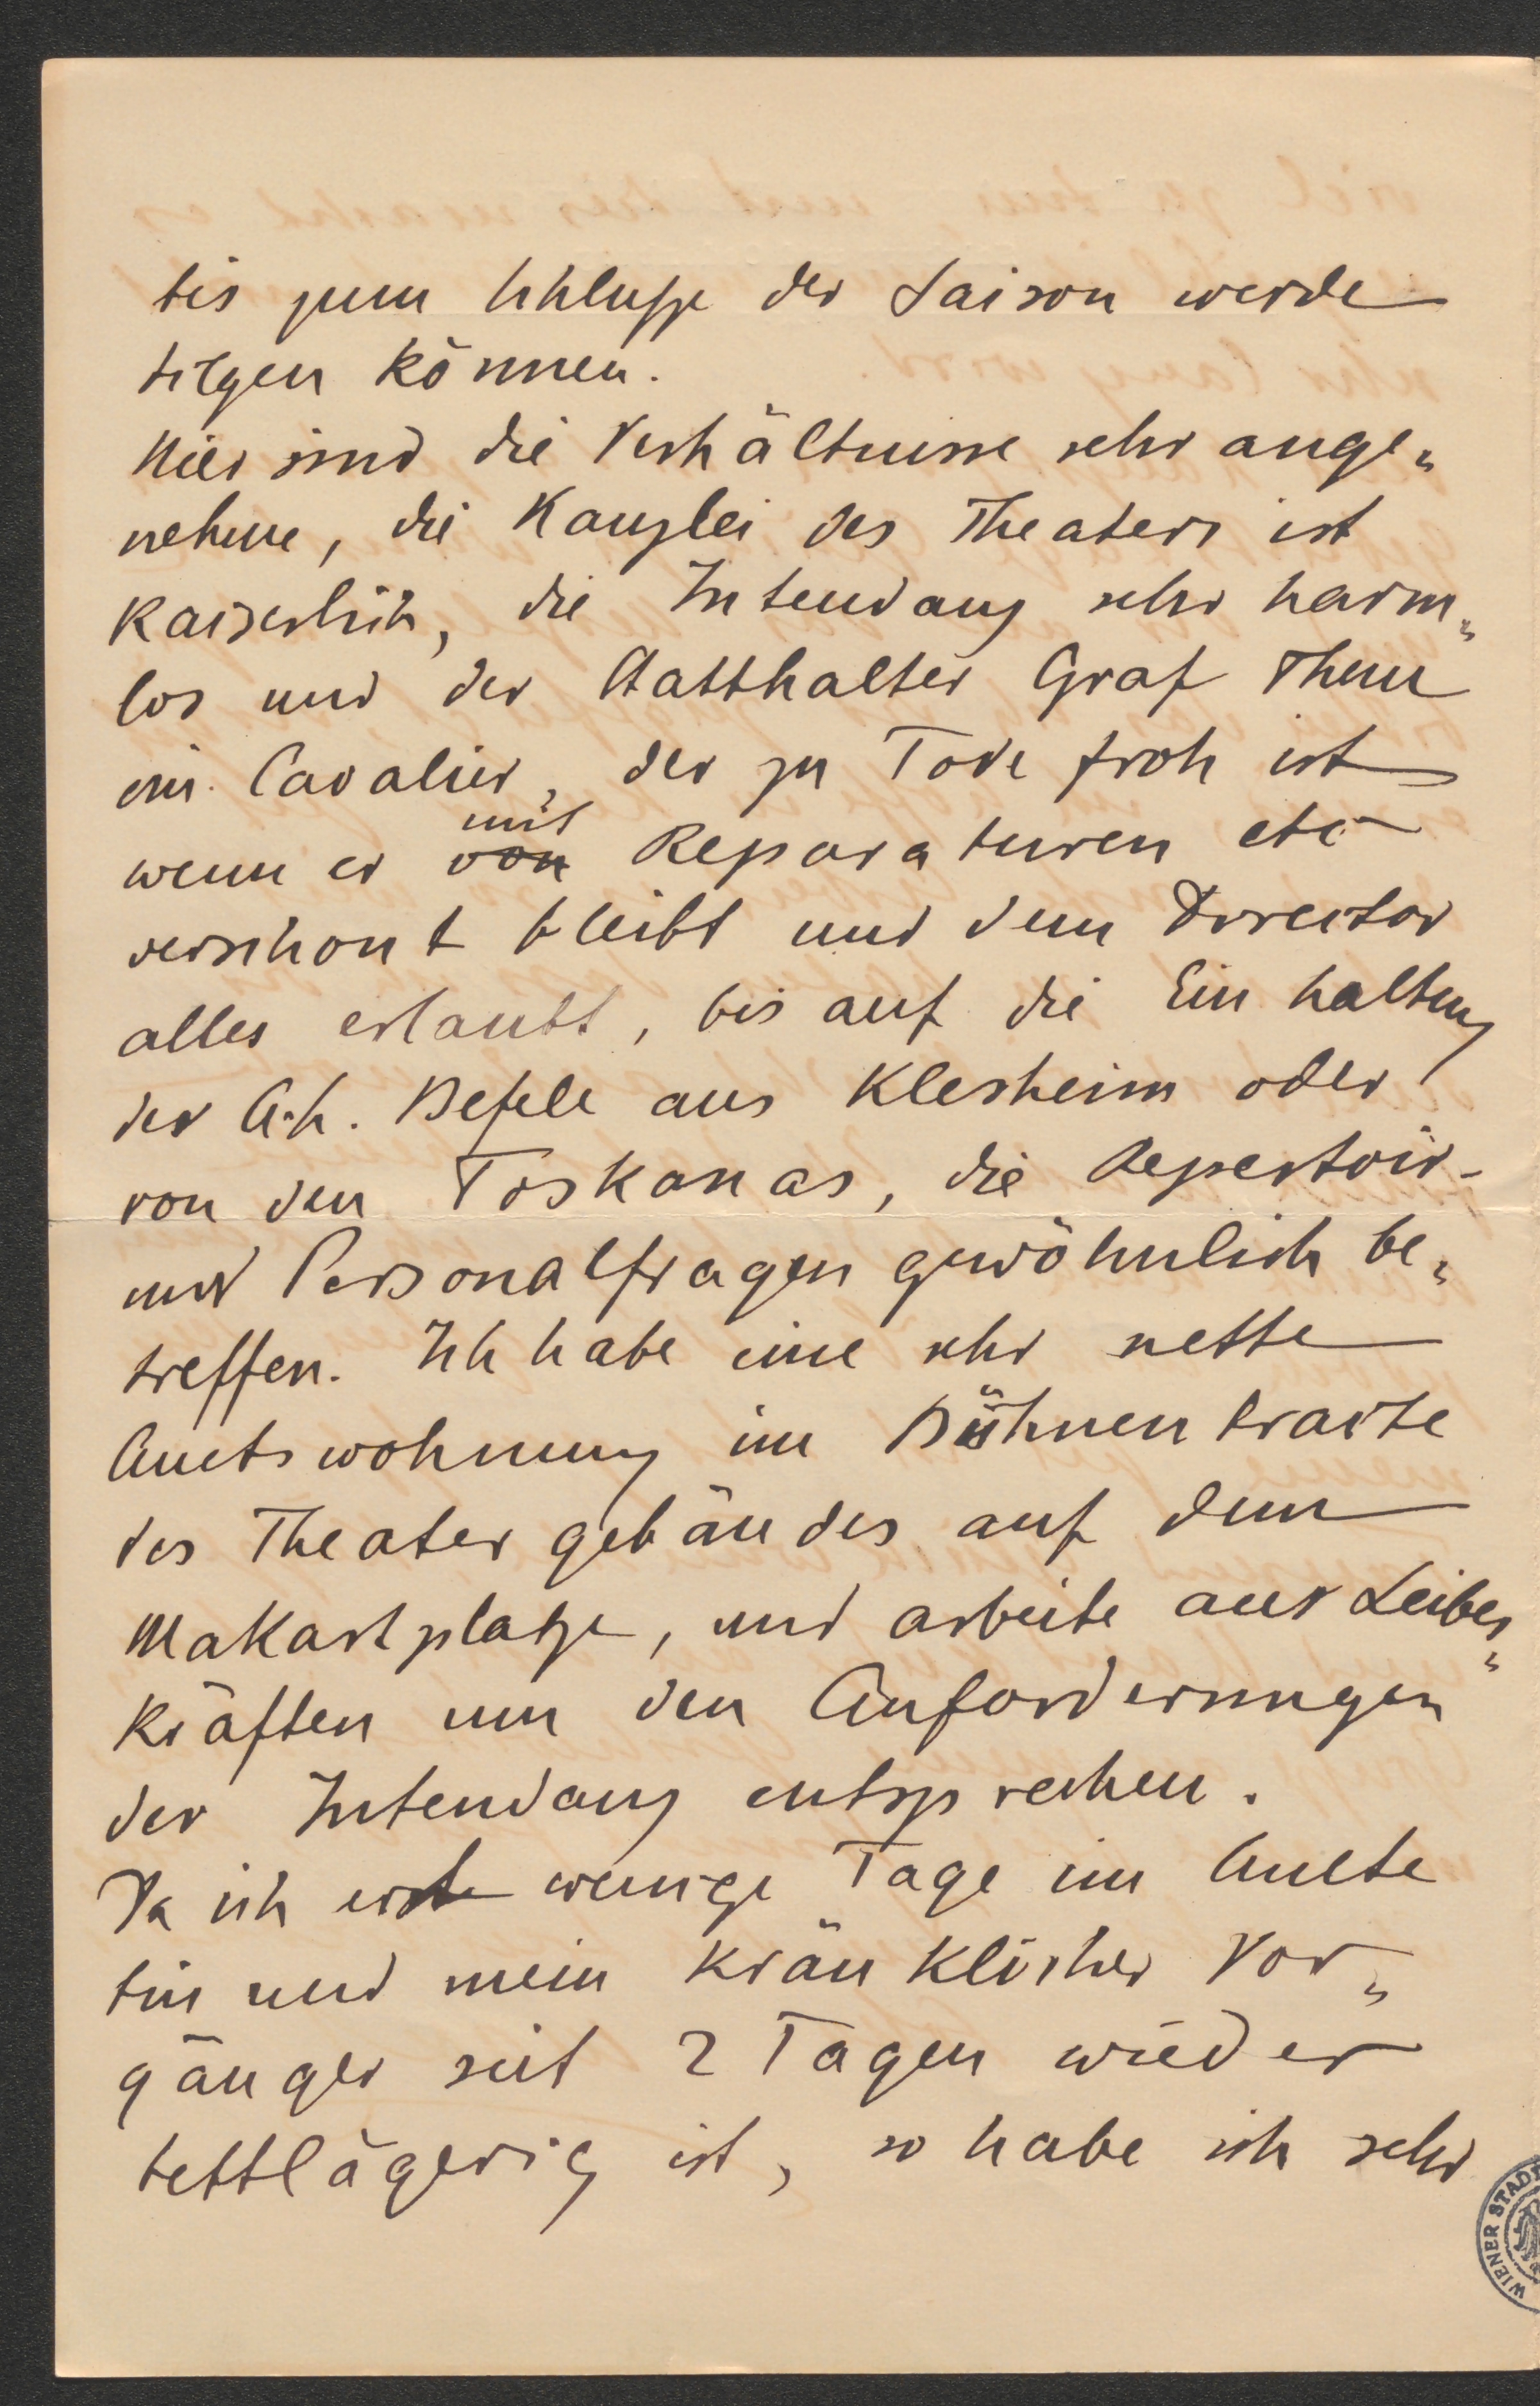 bis zum Schlusse der Saison werde
tilgen können.
Hier sind die Verhältnisse sehr ange„
nehme, die Kanzlei des Theaters ist
kaiserlich, die Intendanz sehr harm„
los und der Statthalter Graf Thun
ein Cavalier, der zu Tode froh ist
wenn er von mit Reparaturen etc
verschont bleibt und dem Director
alles erlaubt, bis auf die Einhaltung
der A.h. Befele aus Klesheim oder
von den Toskanas, die Repertoir-
und Personalfragen gewöhnlich be„
treffen. Ich habe eine sehr nette
Amtswohnung im Bühnentracte
des Theatergebäudes auf dem
Makartplatze, und arbeite aus Leibes„
kräften um den Anforderungen
der Intendanz entsprechen.
Da ich erst wenige Tage im Amte
bin und mein kränklicher Vor„
gänger seit 2 Tagen wieder
bettlägerig ist, so habe ich sehr
WIENER STADT